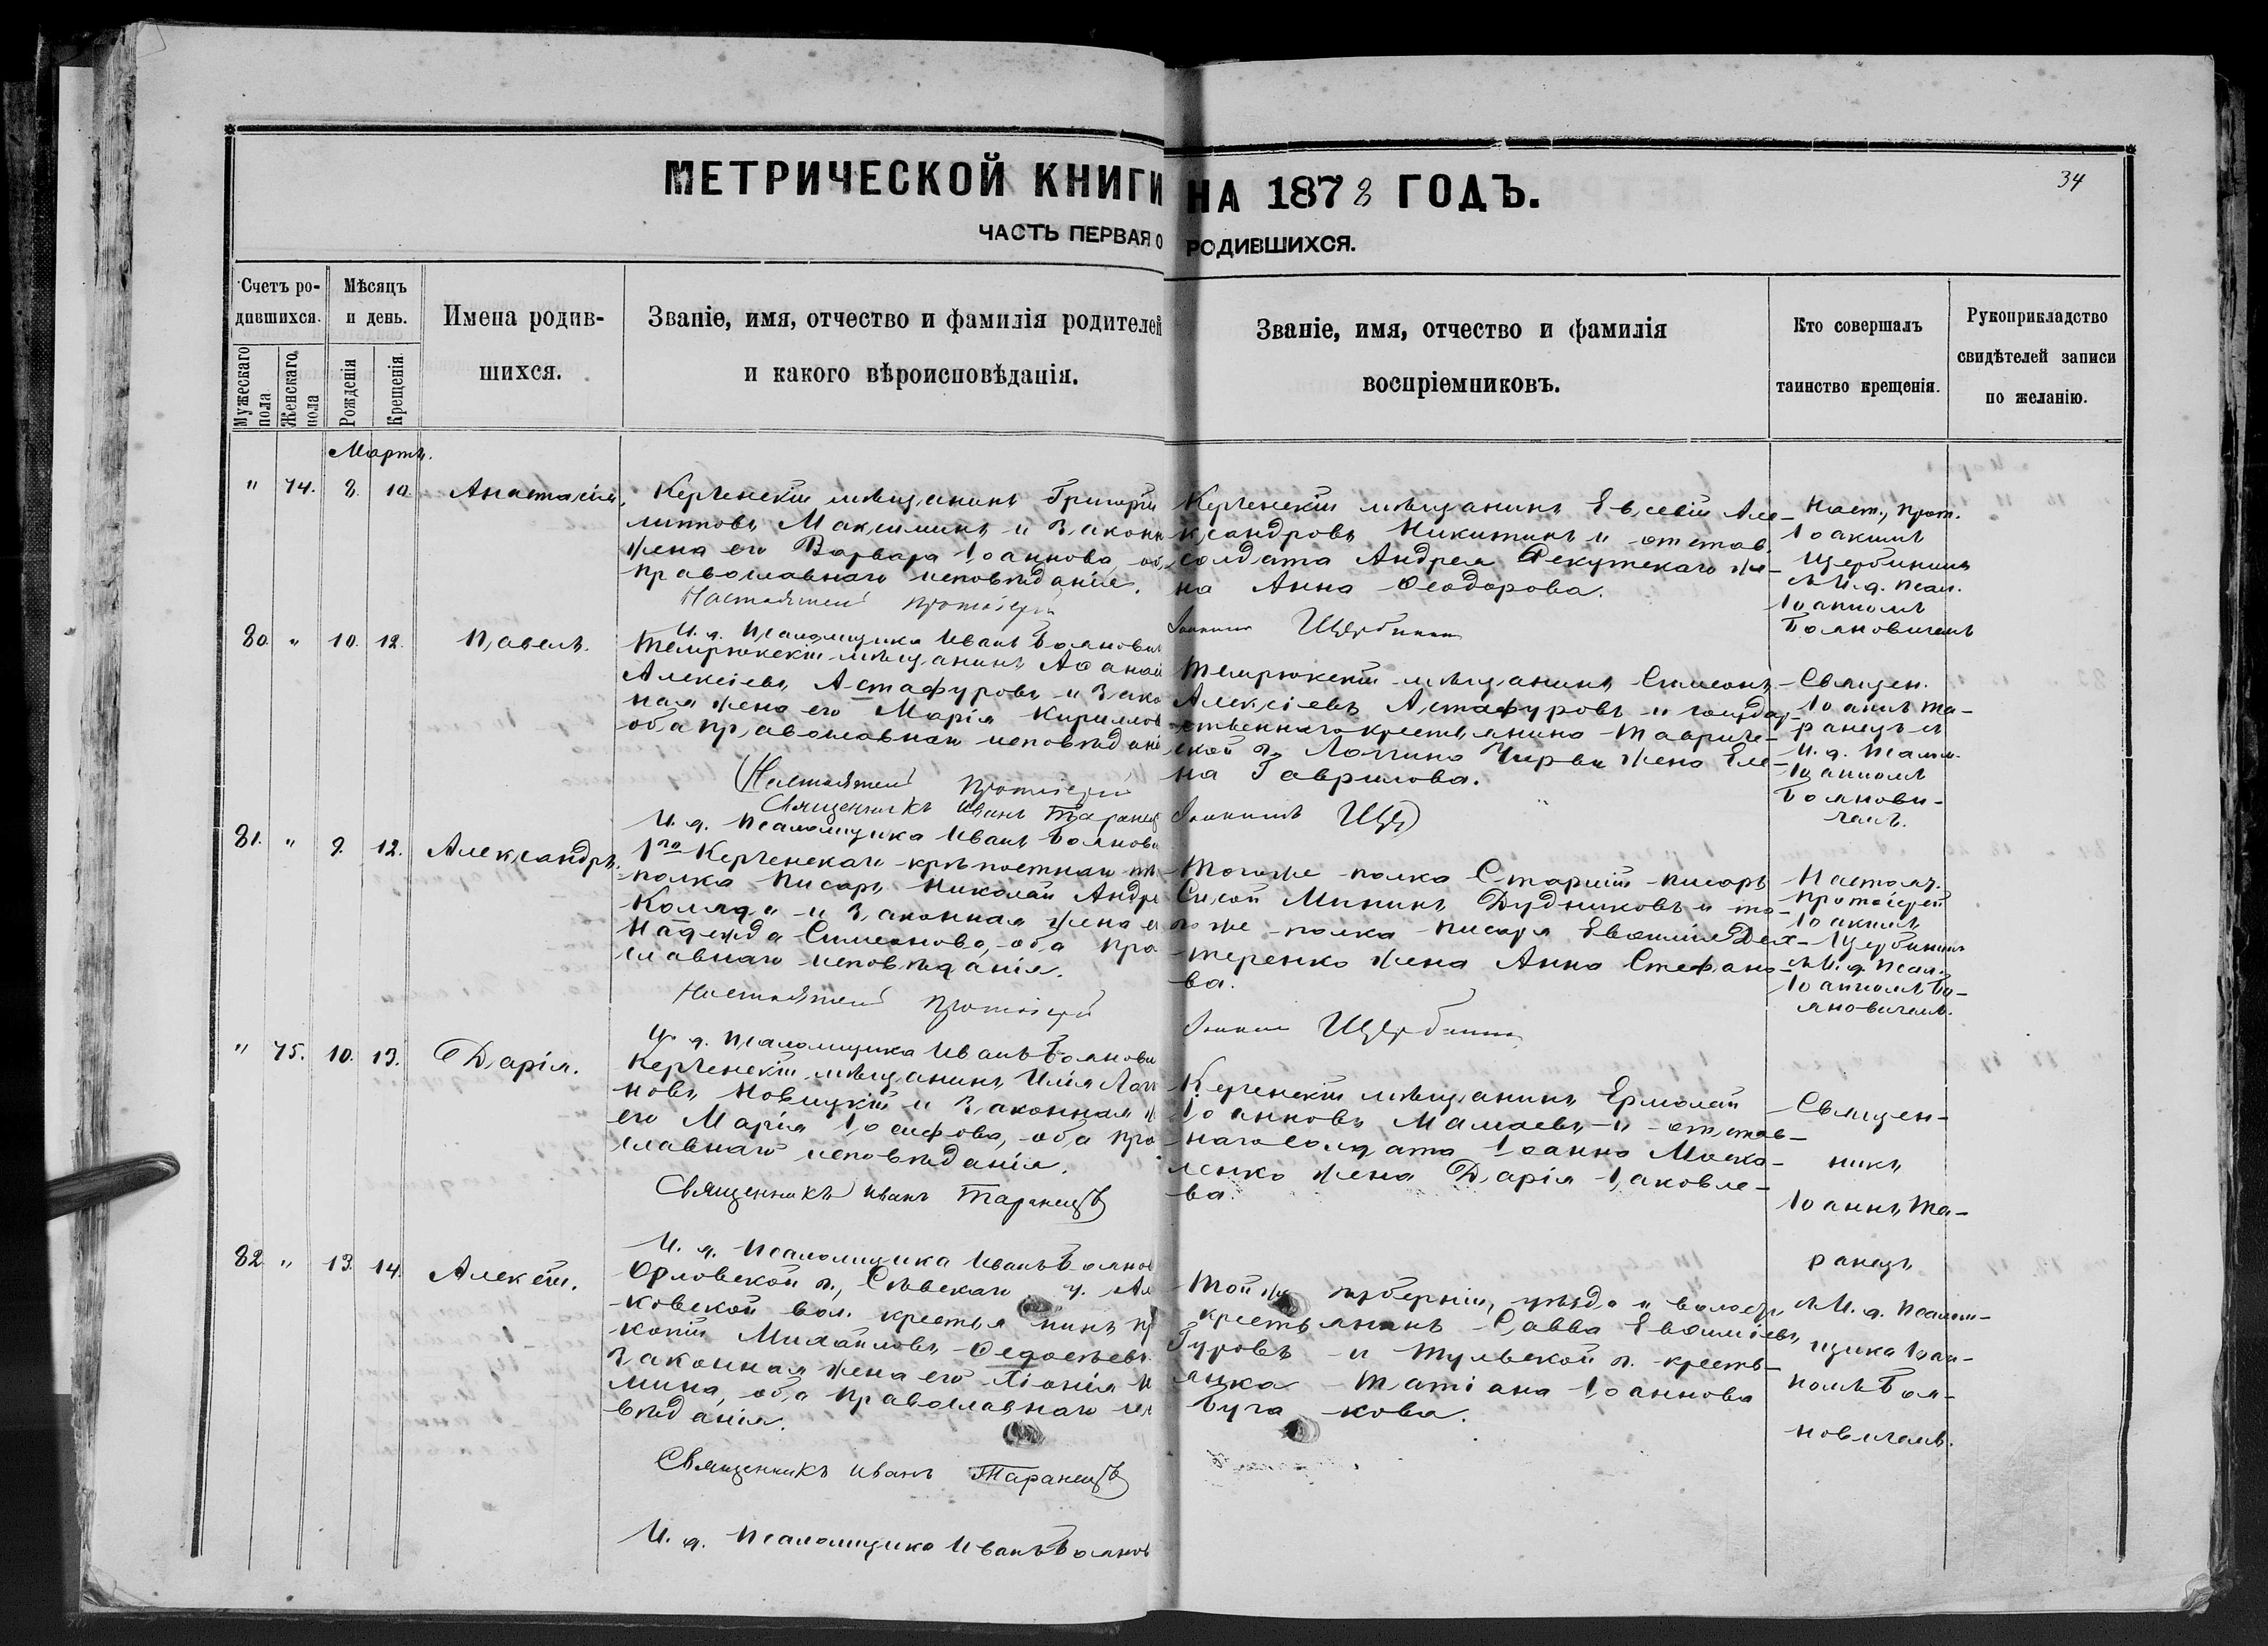 МЕТРИЧЕСКОЙ КНИГИ НА 1878 ГОДЪ.
34
ЧАСТЬ ПЕРВАЯ О РОДИВШИХСЯ.
Счетъ ро-
дившихся.
Мужескаго пола
Женскаго пола
Мѣсяцъ
и день.
Рожденія
Крещенія.
Имена родив-
шихся.
Званіе, имя, отчество и фамилія родителей
и какого вѣроисповѣданія.
Званіе, имя, отчество и фамилія
воспріемниковъ.
Кто совершалъ
таинство крещенія.
Рукоприкладство
свидѣтелей записи
по желанію.
Мартъ.
" 74. 8. 10. Анастасія.
Керченскій мѣщанинъ Григорій
Максиминъ и законн
жена его Варвара Іоаннова, об
православнаго исповѣданія.
Настоятель протоіерей
И. д. Псаломщика Иванъ Боянович
Керченскій мѣщанинъ Евсевій Але-
ксандровъ Никитинъ и отстав.
солдата Андрея Рекутскаго же-
на Анна Ѳеодорова.
Іоакимъ Щербининъ
Наст., прот.
Іоакимъ
Щербининъ
съ И. д. псал.
Іоанномъ
Бояновичемъ
80. " 10. 12. Павелъ.
Темрюкскій мѣщанинъ Аѳанасі
Алексіевъ Астафуровъ и зако
ная жена его Марія Кириллов
оба православнаго исповѣдані
Настоятель Протоіерей
Священникъ Иванъ Таранец
И. д. Псаломщика Иванъ Боянови
Темрюкскій мѣщанинъ Симеонъ
Алексіевъ Астафуровъ и государ-
ственнаго крестьянина Тавриче-
ской г. Логгина Чирвы жена Еле-
на Гаврилова.
Іоакимъ Щер
Священ.
Іоаннъ Та-
ранецъ съ
И. д. псалм.
Іоанномъ
Боянови-
чемъ.
81. " 9. 12. Александръ.
1го Керченскаго крѣпостнаго
полка писарь Николай Андре
Коляда и законная жена е
Надежда Симеонова, оба пра
славнаго исповѣданія.
Настоятель Протоіерей
И. д. Псаломщика Иванъ Боянови
Тогоже полка Старшій писарь
Сисой Мининъ Дудниковъ и то-
гоже полка писаря Евѳимія Дех-
теренко жена Анна Стефано-
ва.
Іоакимъ Щербининъ
Настоят.
Протоіерей
Іоакимъ
Щербининъ
съ И. д. псал.
Іоанномъ Бо-
яновичемъ.
" 75. 10. 13. Дарія.
Керченскій мѣщанинъ Илія Логг
новъ Новицкій и законная ж
его Марія Іосифова, оба пра
славнаго исповѣданія.
Священникъ Иванъ Таранецъ
И. д. Псаломщика Иванъ Боянов
Керченскій мѣщанинъ Ермолай
Іоанновъ Мамаевъ и отстав-
наго солдата Іоанна Моска-
ленко жена Дарія Іаковле-
ва.
Священ-
никъ
Іоаннъ Та-
ранецъ
съ И. д. Псалом-
щика Іоан-
номъ Боя-
новичемъ.
82. " 13. 14. Алексій.
Орловской г., Сѣвскаго у. Ал
ковской вол. крестьянинъ Пр
копій Михайловъ Ѳедосѣевъ
законная жена его Ѳіонія
мина, оба православнаго исп
вѣданія.
Священникъ Иванъ Таранецъ
И. д. Псаломщика Иванъ Боянов
Той же губерніи, уѣзда и волости
крестьянинъ Савва Евѳиміевъ
Гуровъ и Тульской г. кресть-
янка Татіана Іоаннова
Бугакова.